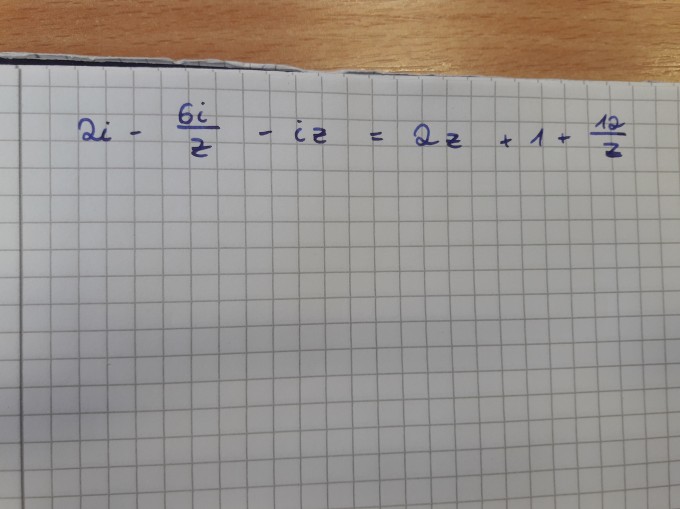 2i - 6i/z - iz = 2z + 1 + 12/z